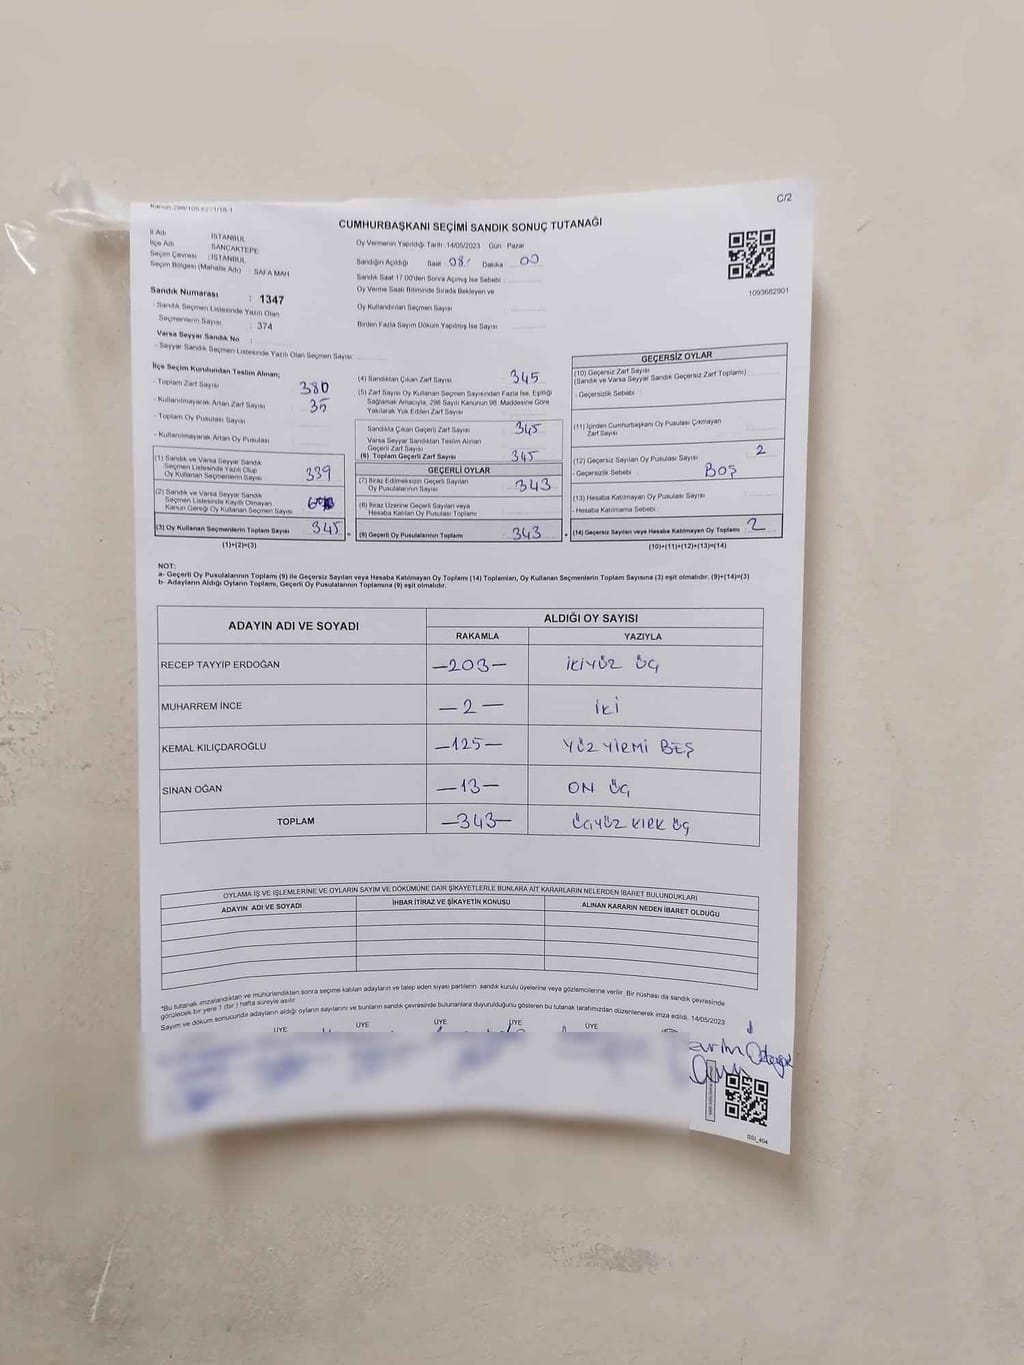 C/2
CUMHURBAŞKANI SEÇİMİ SANDIK SONUÇ TUTANAĞI
İl Adı : İSTANBUL
İlçe Adı : SANCAKTEPE
Seçim Çevresi : İSTANBUL
Seçim Bölgesi (Mahalle Adı) : SAFA MAH
Oy Vermenin Yapıldığı Tarih :14/05/2023 Gün : Pazar
Sandığın Açıldığı Saat : 08: Dakika : 00
Sandık Saat 17.00'den Sonra Açımış İse Sebebi :
Oy Verme Saati Bitiminde Sırada Bekleyen ve
Oy Kullandırılan Seçmen Sayısı
Birden Fazla Sayım Döküm Yapılmış İse Sayısı
1093682901
Sandık Numarası : 1347
- Sandık Seçmen Listesinde Yazılı Olan
Seçmenlerin Sayısı : 374
Varsa Seyyar Sandık No :
- Seyyar Sandık Seçmen Listesinde Yazılı Olan Seçmen Sayısı
İlçe Seçim Kurulundan Teslim Alınan;
- Toplam Zarf Sayısı 380
- Kullanılmayarak Artan Zarf Sayısı 35
- Toplam Oy Pusulası Sayısı
- Kullanılmayarak Artan Oy Pusulası
(1) Sandık ve Varsa Seyyar Sandık
Seçmen Listesinde Yazılı Olup
Oy Kullanan Seçmenlerin Sayısı 339
(2) Sandık ve Varsa Seyyar Sandık
Seçmen Listesinde Kayıtlı Olmayan
Kanun Gereği Oy Kullanan Seçmen Sayısı
(3) Oy Kullanan Seçmenlerin Toplam Sayısı 345
(1)+(2)=(3)
(4) Sandıktan Çıkan Zarf Sayısı 345
(5) Zarf Sayısı Oy Kullanan Seçmen Sayısından Fazla İse, Eşitliği
Sağlamak Amacıyla, 298 Sayılı Kanunun 98. Maddesine Göre
Yakılarak Yok Edilen Zarf Sayısı
Sandıkta Çıkan Geçerli Zarf Sayısı 345
Varsa Seyyar Sandıktan Teslim Alınan
Geçerli Zarf Sayısı
(6) Toplam Geçerli Zarf Sayısı 345
GEÇERLİ OYLAR
(7) İtiraz Edilmeksizin Geçerli Sayılan
Oy Pusulalarının Sayısı 343
(8) İtiraz Üzerine Geçerli Sayılan veya
Hesaba Katılan Oy Pusulası Toplamı
(9) Geçerli Oy Pusulalarının Toplamı 343
GEÇERSİZ OYLAR
(10) Geçersiz Zarf Sayısı
(Sandık ve Varsa Seyyar Sandık Geçersiz Zarf Toplamı)
- Geçersizlik Sebebi
(11) İçinden Cumhurbaşkanı Oy Pusulası Çıkmayan
Zarf Sayısı
(12) Geçersiz Sayılan Oy Pusulası Sayısı 2
- Geçersizlik Sebebi BOŞ
(13) Hesaba Katılmayan Oy Pusulası Sayısı
- Hesaba Katılmama Sebebi
(14) Geçersiz Sayılan veya Hesaba Katılmayan Oy Toplamı 2
(10)+(11)+(12)+(13)=(14)
NOT:
a- Geçerli Oy Pusulalarının Toplamı (9) ile Geçersiz Sayılan veya Hesaba Katılmayan Oy Toplamı (14) Toplamları, Oy Kullanan Seçmenlerin Toplam Sayısına (3) eşit olmalıdır. (9)+(14)=(3)
b- Adayların Aldığı Oyların Toplamı, Geçerli Oy Pusulalarının Toplamına (9) eşit olmalıdır.
ADAYIN ADI VE SOYADI
ALDIĞI OY SAYISI
RAKAMLA YAZIYLA
RECEP TAYYİP ERDOĞAN –203– İKİYÜZ ÜÇ
MUHARREM İNCE –2– İKİ
KEMAL KILIÇDAROĞLU –125– YÜZ YİRMİ BEŞ
SİNAN OĞAN –13– ON ÜÇ
TOPLAM –343– ÜÇYÜZ KIRK ÜÇ
OYLAMA İŞ VE İŞLEMLERİNE VE OYLARIN SAYIM VE DÖKÜMÜNE DAİR ŞİKAYETLERLE BUNLARA AİT KARARLARIN NELERDEN İBARET BULUNDUKLARI
ADAYIN ADI VE SOYADI İHBAR İTİRAZ VE ŞİKAYETİN KONUSU ALINAN KARARIN NEDEN İBARET OLDUĞU
"Bu tutanak imzalandıktan ve mühürlendikten sonra seçime katılan adayların ve talep eden siyasi partilerin sandık kurulu üyelerine veya gözlemcilerine verilir. Bir nüshası da sandık çevresinde
görülecek bir yere 1 (bir) hafta süreyle asılır.
Sayım ve döküm sonucunda adayların aldığı oyların sayılarını ve bunların sandık çevresinde bulunanlara duyurulduğunu gösteren bu tutanak tarafımızdan düzenlenerek imza edildi. 14/05/2023
ÜYE ÜYE ÜYE ÜYE ÜYE